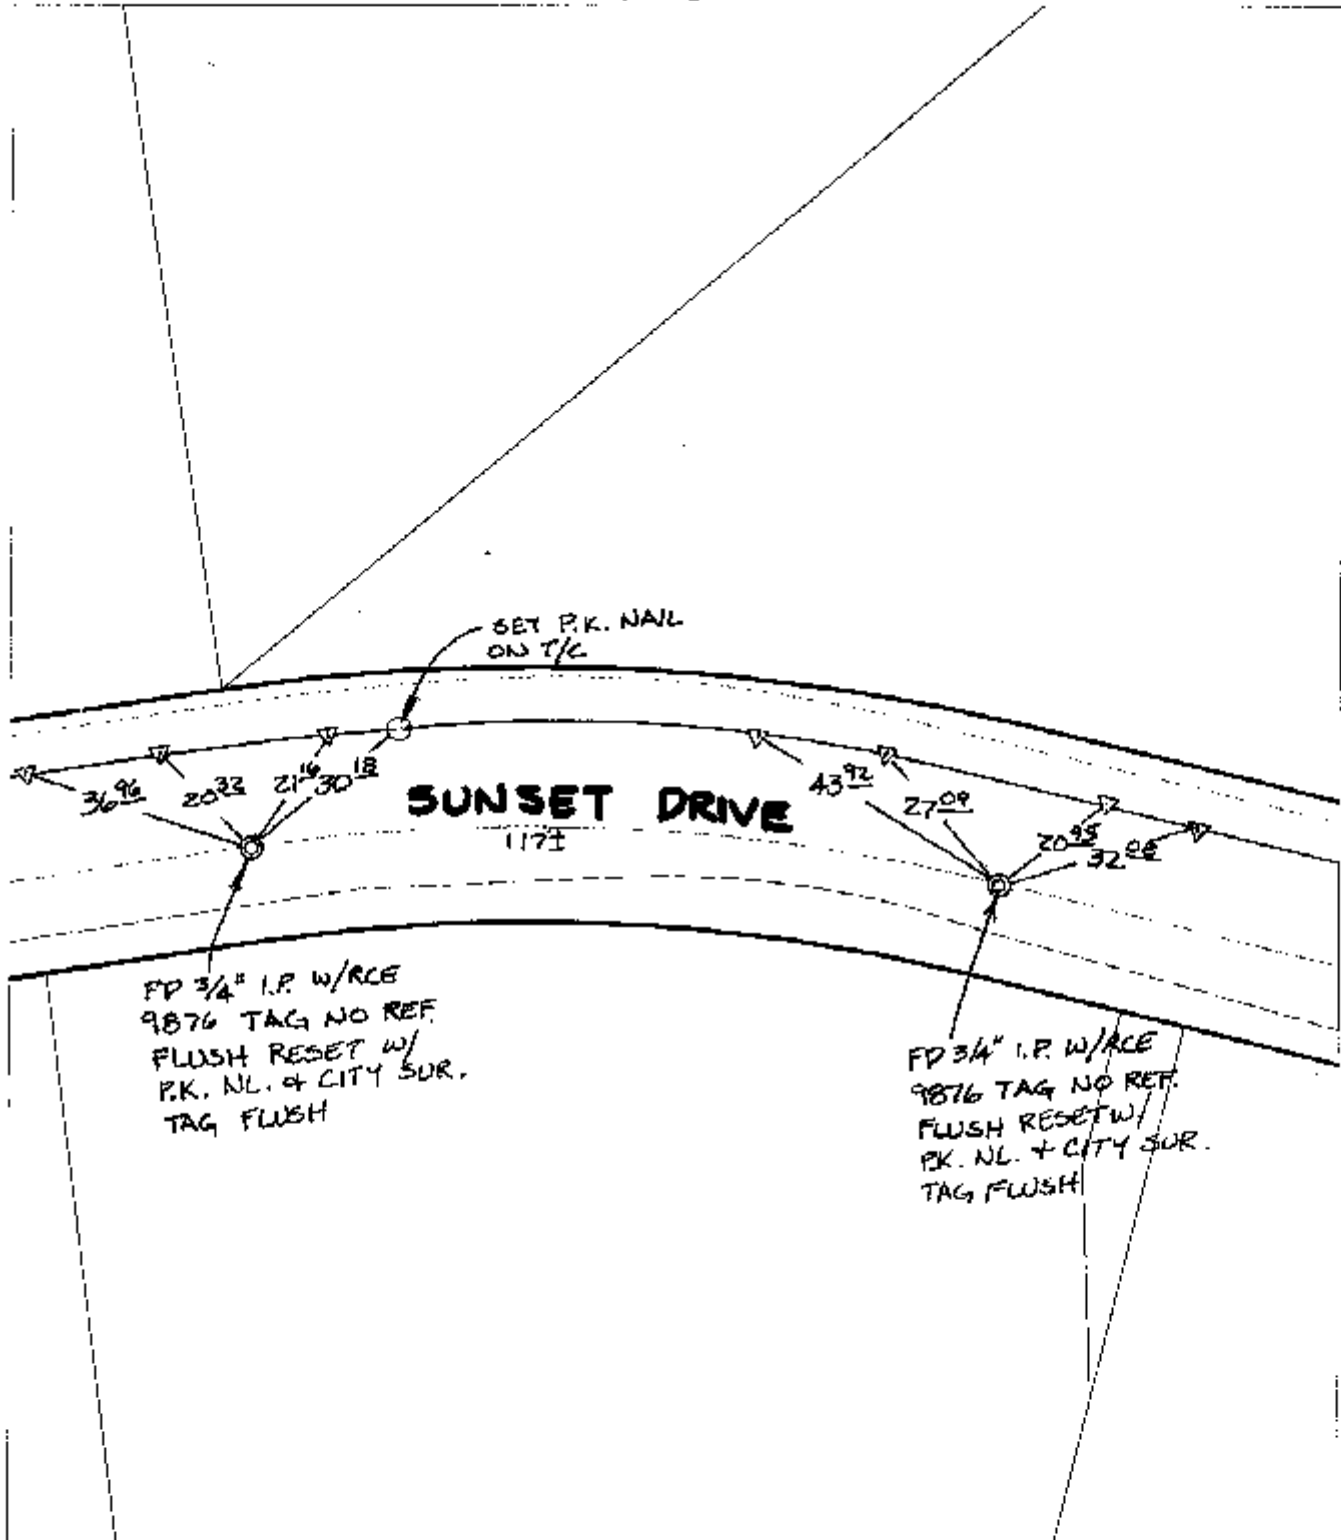 SET P.K. NAIL
ON T/C
36 96
20 33
21 16
30 18
SUNSET DRIVE
117±
43 92
27 09
20 95
32 08
FD 3/4" I.P. W/RCE
9876 TAG NO REF.
FLUSH RESET W/
P.K. NL. & CITY SUR.
TAG FLUSH
FD 3/4" I.P. W/RCE
9876 TAG NO REF.
FLUSH RESET W/
P.K. NL. & CITY SUR.
TAG FLUSH